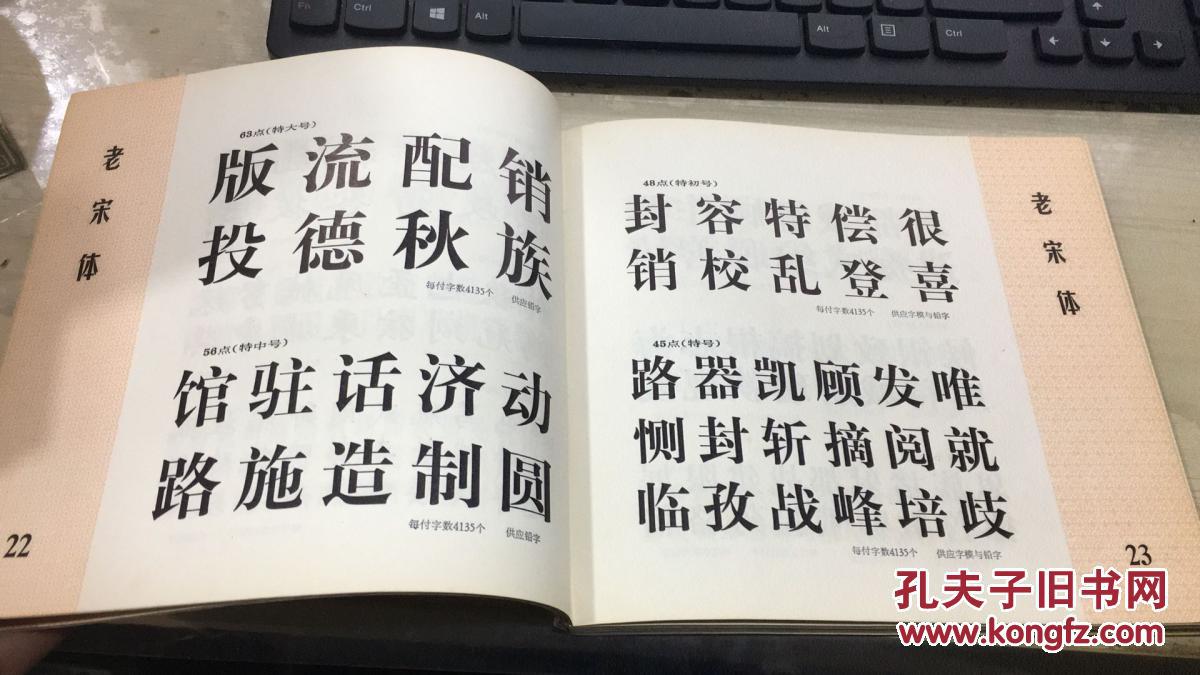 老宋体
63点(特大号)
版流配销
投德秋族
每付字数4135个 供应铅字
56点(特中号)
馆驻话济动
路施造制圆
每付字数4135个 供应铅字
22
老宋体
48点(特初号)
封容特偿很
销校乱登喜
每付字数4135个 供应字模与铅字
45点(特号)
路器凯顾发唯
恻封斩摘阅就
临孜战峰培歧
每付字数4135个 供应字模与铅字
23
Fn
Ctrl
Alt
Alt
Ctrl
孔夫子旧书网
www.kongfz.com